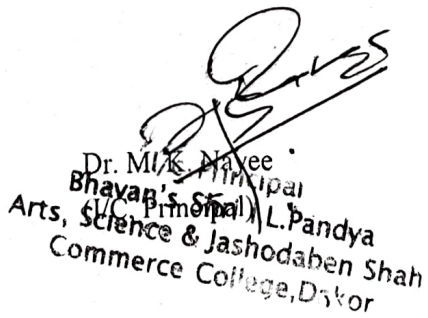 Dr. M. K. Nayee
(I/C Principal)
Principal
Bhavan's Shri I. L. Pandya
Arts, Science & Jashodaben Shah
Commerce College, Dakor